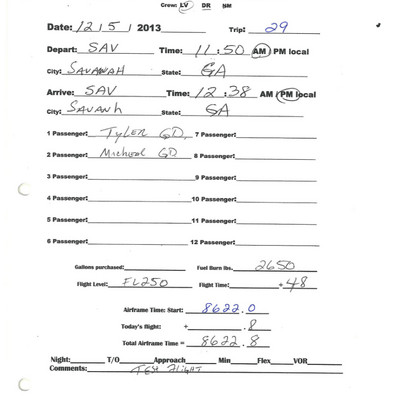 Crew: LV DR NM
Date: 12 / 5 / 2013 Trip: 29
Depart: SAV Time: 11 : 50 AM / PM local
City: SAVANAH State: GA
Arrive: SAV Time: 12 : 38 AM / PM local
City: SAVANH State: GA
1 Passenger: Tyler GD 7 Passenger:
2 Passenger: Micheal GD 8 Passenger:
3 Passenger: 9 Passenger:
4 Passenger: 10 Passenger:
5 Passenger: 11 Passenger:
6 Passenger: 12 Passenger:
Gallons purchased: Fuel Burn lbs. 2650
Flight Level: FL250 Flight Time: +48
Airframe Time: Start: 8622.0
Today's flight: + .8
Total Airframe Time = 8622.8
Night: T/O Approach Min Flex VOR
Comments: TEST FLIGHT